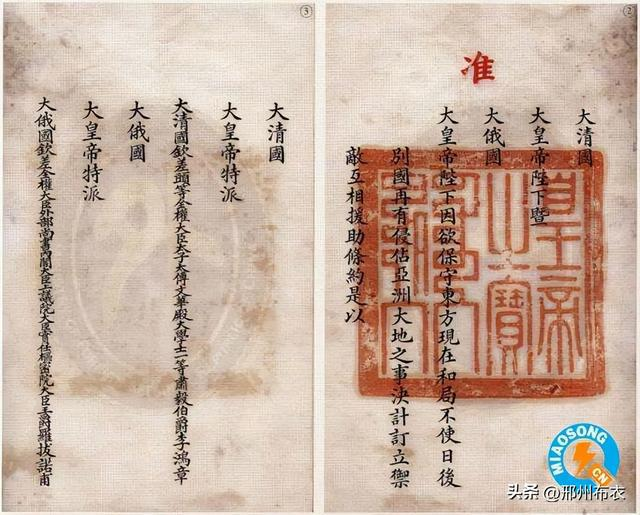 ②
准
大清國
大皇帝陛下暨
大俄國
大皇帝陛下因欲保守東方現在和局不使日後
別國再有侵佔亞洲大地之事決計訂立禦
敵互相援助條約是以
皇帝之寶
③
大清國
大皇帝特派
大清國欽差頭等全權大臣太子太傅文華殿大學士一等肅毅伯爵李鴻章
大俄國
大皇帝特派
大俄國欽差全權大臣外部尚書內閣大臣上議院大臣實任樞密院大臣王爵羅拔諾甫
MIAOSONG
CN
头条 @邢州布衣